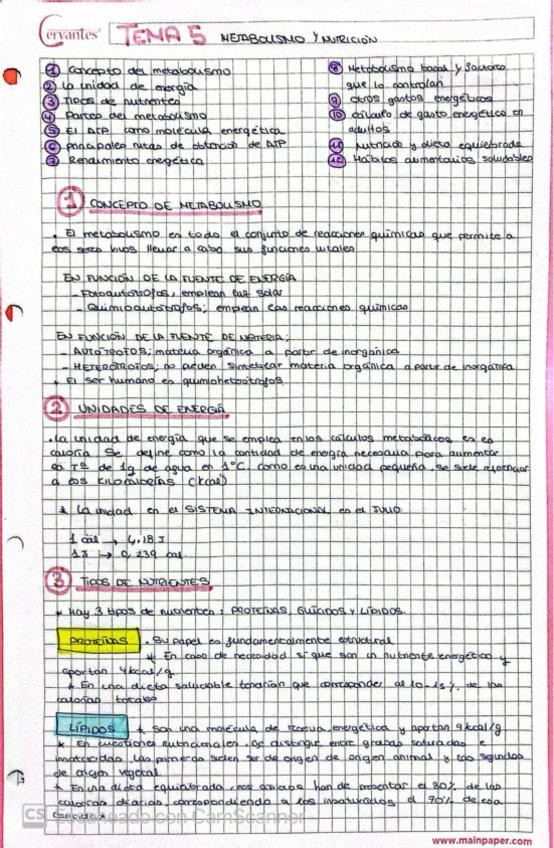 Cervantes
TEMA 5 METABOLISMO Y NUTRICIÓN
① Concepto del metabolismo
② La unidad de energía
③ Tipos de nutrientes
④ Partes del metabolismo
⑤ El ATP como molécula energética
⑥ principales rutas de obtención de ATP
⑦ Rendimiento energético
⑧ Metabolismo basal y factores
que lo controlan
⑨ Otros gastos energéticos
⑩ cálculo de gasto energético en
adultos
⑪ Nutrición y dieta equilibrada
⑫ Hábitos alimentarios saludables
① CONCEPTO DE METABOLISMO
. El metabolismo es todo el conjunto de reacciones químicas que permite a
los seres vivos llevar a cabo sus funciones vitales
EN FUNCIÓN DE LA FUENTE DE ENERGÍA
- Fotoautótrofos, emplean luz solar
- Quimioautótrofos; emplean las reacciones químicas
EN FUNCIÓN DE LA FUENTE DE MATERIA;
- AUTÓTROFOS; materia orgánica a partir de inorgánica
- HETERÓTROFOS; no pueden sintetizar materia orgánica a partir de inorgánica
* El ser humano es quimioheterótrofos
② UNIDADES DE ENERGÍA
. La unidad de energía que se emplea en los cálculos metabólicos es la
caloría Se define como la cantidad de energía necesaria para aumentar
la Tª de 1g de agua en 1°C. como es una unidad pequeña, se suele
a las KILOCALORÍAS (kcal)
* La unidad en el SISTEMA INTERNACIONAL es el JULIO
1 cal → 4,18 J
1 J → 0,239 cal
③ TIPOS DE NUTRIENTES
* Hay 3 tipos de nutrientes: PROTEÍNAS, GLÚCIDOS Y LÍPIDOS.
PROTEÍNAS . Su papel es fundamentalmente estructural
* En caso de necesidad si que son un nutriente energético y
aportan 4kcal/g.
* En una dieta saludable tendrían que corresponder al 10-15% de las
calorías totales
LÍPIDOS * Son una molécula de reserva energética y aportan 9kcal/g
* En cuestiones nutricionales. Se distingue entre grasas saturadas e
insaturadas. Las primeras suelen ser de origen de origen animal y las segundas
de origen vegetal.
* En una dieta equilibrada, los han de presentar el 30% de las
calorías diarias, correspondiendo a los insaturados el 70% de esa
cantidad
CS Escaneado con CamScanner
www.mainpaper.com